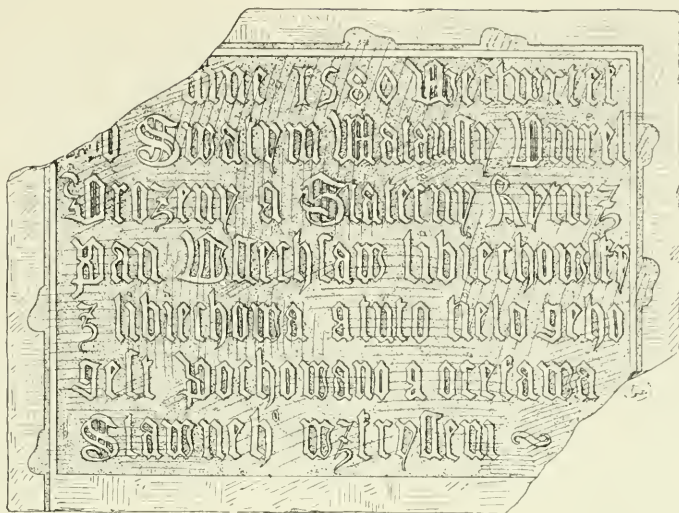 1580 Wecturtek
o Swatem Mataussy Vmrel
Vrozeny a Statecny Rytirz
pan libiechowsky
z libiechowa a tuto tielo geho
gest pochowano a ocekawa
Slawneh° wzkryssem ~